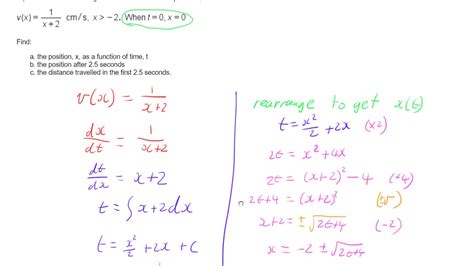 v(x) = 1/(x+2) cm/s, x > −2. When t = 0, x = 0
Find:
a. the position, x, as a function of time, t
b. the position after 2.5 seconds
c. the distance travelled in the first 2.5 seconds.
v(x) = 1/(x+2)
dx/dt = 1/(x+2)
dt/dx = x+2
t = ∫ x+2 dx
t = x²/2 + 2x + C
rearrange to get x(t)
t = x²/2 + 2x (×2)
2t = x² + 4x
2t = (x+2)² − 4 (+4)
2t+4 = (x+2)² (±√)
x+2 = ±√(2t+4) (−2)
x = −2 ±√(2t+4)